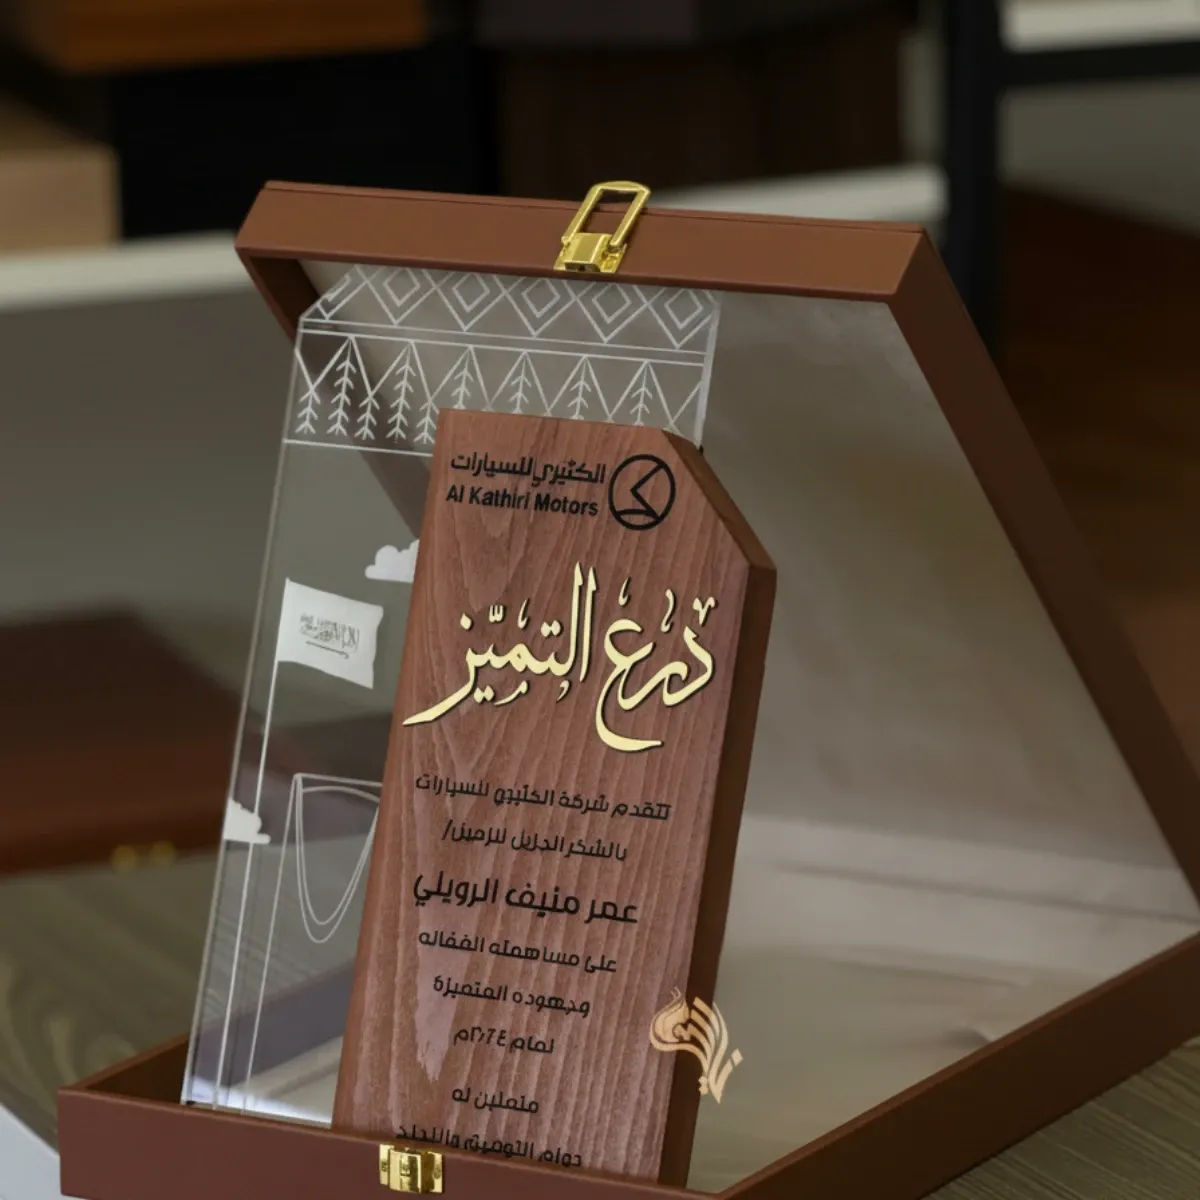 الكثيري للسيارات
Al Kathiri Motors
درع التميّز
تتقدم شركة الكثيري للسيارات
بالشكر الجزيل للزميل/
عمر منيف الرويلي
على مساهمته الفعاله
وجهوده المتميزة
لعام ٢٠٢٤م
متمنين له
دوام التوفيق والنجاح